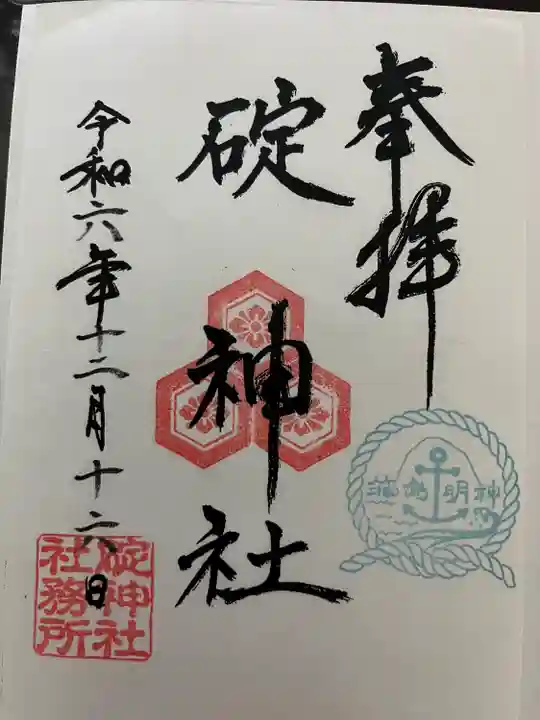 奉拝
碇神社
令和六年十二月十六日
碇神社
社務所
箱島明神